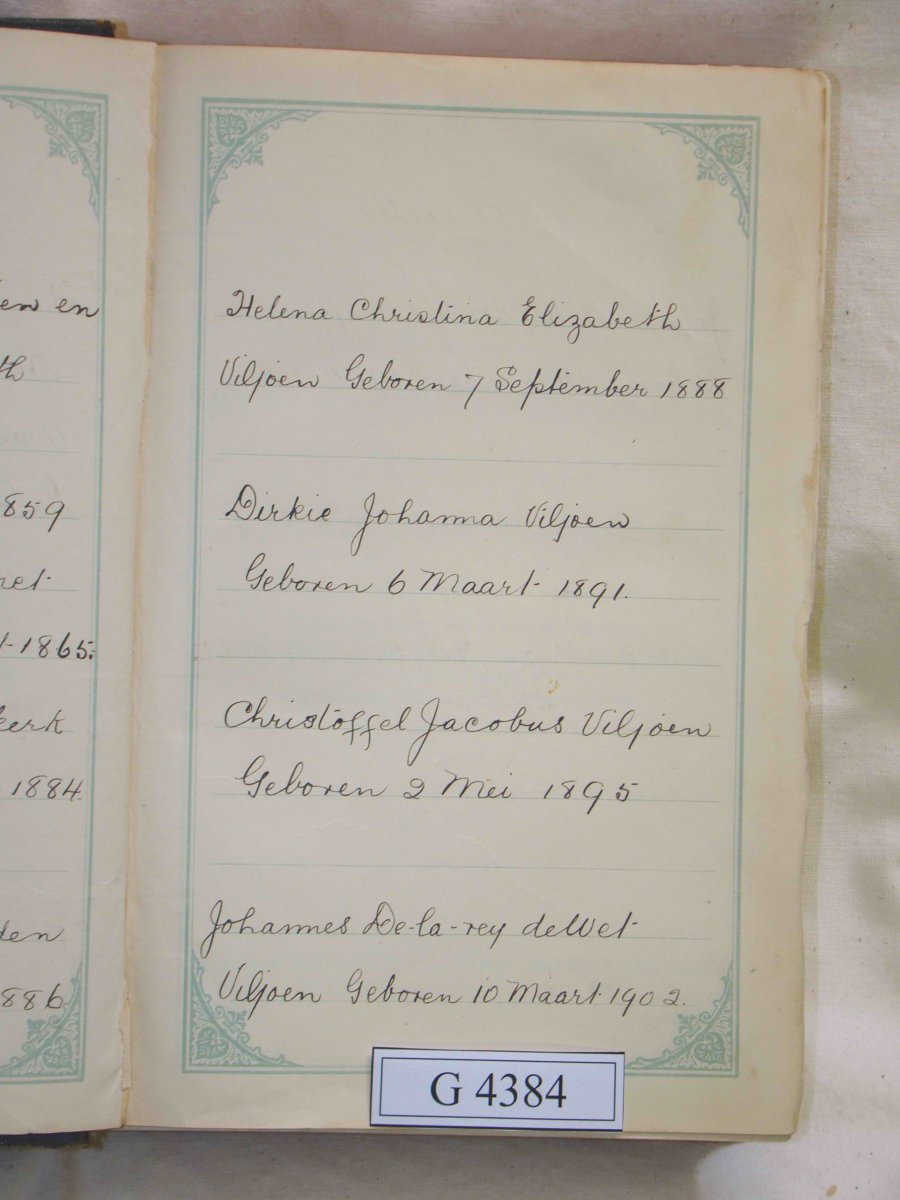 en en
th
859
net
t 1865.
kerk
1884.
den
886
Helena Christina Elizabeth
Viljoen Geboren 7 September 1888
Dirkie Johanna Viljoen
Geboren 6 Maart 1891.
Christoffel Jacobus Viljoen
Geboren 2 Mei 1895
Johannes De-la-rey deWet
Viljoen Geboren 10 Maart 1902.
G 4384